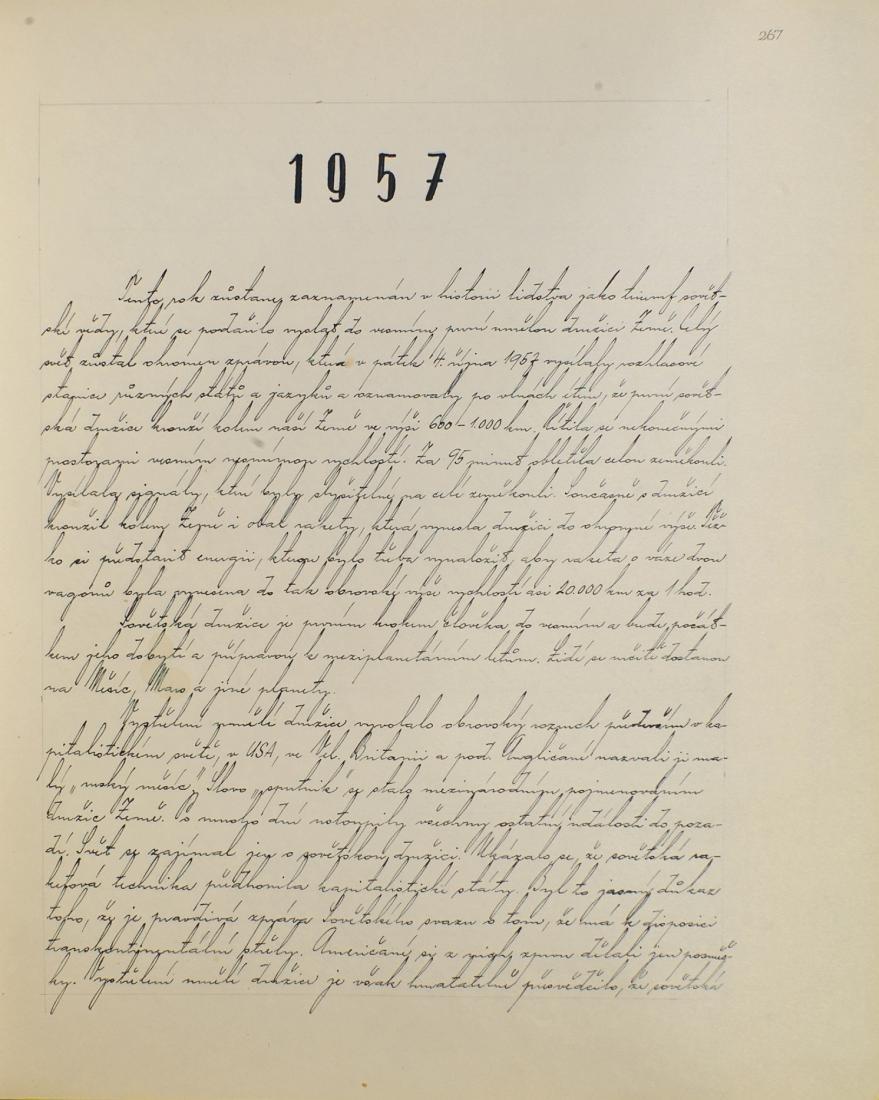 267
1957
Tento rok zůstane zaznamenán v historii lidstva jako triumf sovět-
ské vědy, které se podařilo vyslat do vesmíru první umělou družici Země. Celý
svět zůstal ohromen zprávou, která v pátek 4. října 1957 vysílaly rozhlasové
stanice různých států a jazyků a oznamovaly po vlnách éteru, že první sovět-
ská družice krouží kolem naší Země ve výši 600 – 1.000 km. Řítila se nekonečnými
prostorami vesmíru vesmírnou rychlostí. Za 95 minut obletěla celou zeměkouli.
Vysílala signály, které byly slyšitelné na celé zeměkouli. Současně s družicí
kroužil kolem Země i obal rakety, která vynesla družici do ohromné výše. Těž-
ko si představit energii, kterou bylo třeba vynaložit, aby raketa o váze dvou
vagonů byla vynesena do tak obrovské výše rychlostí asi 20.000 km za 1 hod.
Sovětská družice je prvním krokem člověka do vesmíru a bude počát-
kem jeho dobytí a přípravou k meziplanetárním letům. Lidé se určitě dostanou
na Měsíc, Mars a jiné planety.
Vystřelení umělé družice vyvolalo obrovský rozruch především v ka-
pitalistickém světě, v USA, ve Vel. Britanii a pod. Angličané nazvali ji ma-
lý „ruský měsíc“. Slovo „sputnik“ se stalo mezinárodním pojmenováním
družic Země. Na mnoho dní ustoupily všechny ostatní události do poza-
dí. Svět se zajímal jen o sovětskou družici. Ukázalo se, že sovětská ra-
ketová technika předhonila kapitalistické státy. Byl to jasný důkaz
toho, že je pravdivá zpráva Sovětského svazu o tom, že má k disposici
transkontinentální střely. Američané si z nich zprvu dělali jen posměš-
ky. Vystřelení umělé družice je však hmatatelně přesvědčilo, že sovětská